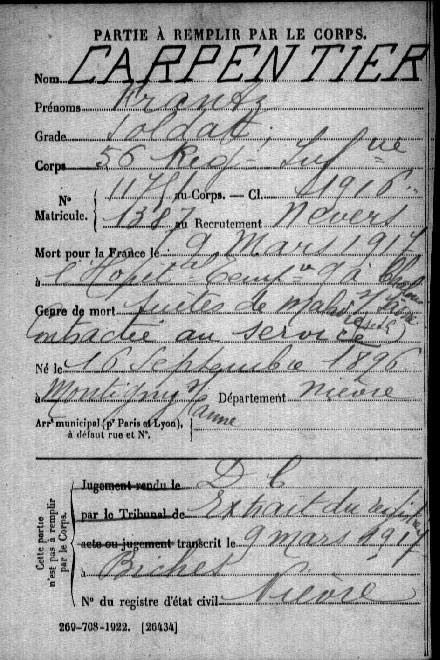 PARTIE À REMPLIR PAR LE CORPS.
Nom CARPENTIER
Prénoms Frantz
Grade Soldat
Corps 56 Reg. Inf rie
N° Matricule. 1178 au Corps. — Cl. 1916
1387 au Recrutement Nevers
Mort pour la France le 9 Mars 1917
à l'Hopital 9 à
Genre de mort suites de maladie
contractée au service
Né le 16 Septembre 1896
à Montigny s/ Canne Département Nièvre
Arrt municipal (pr Paris et Lyon),
à défaut rue et N°.
Cette partie
n'est pas à remplir
par le Corps.
Jugement rendu le D C
par le Tribunal de Extrait du
acte ou jugement transcrit le 9 mars 1917
à Biches
N° du registre d'état civil Nièvre
269-708-1922. [26434]